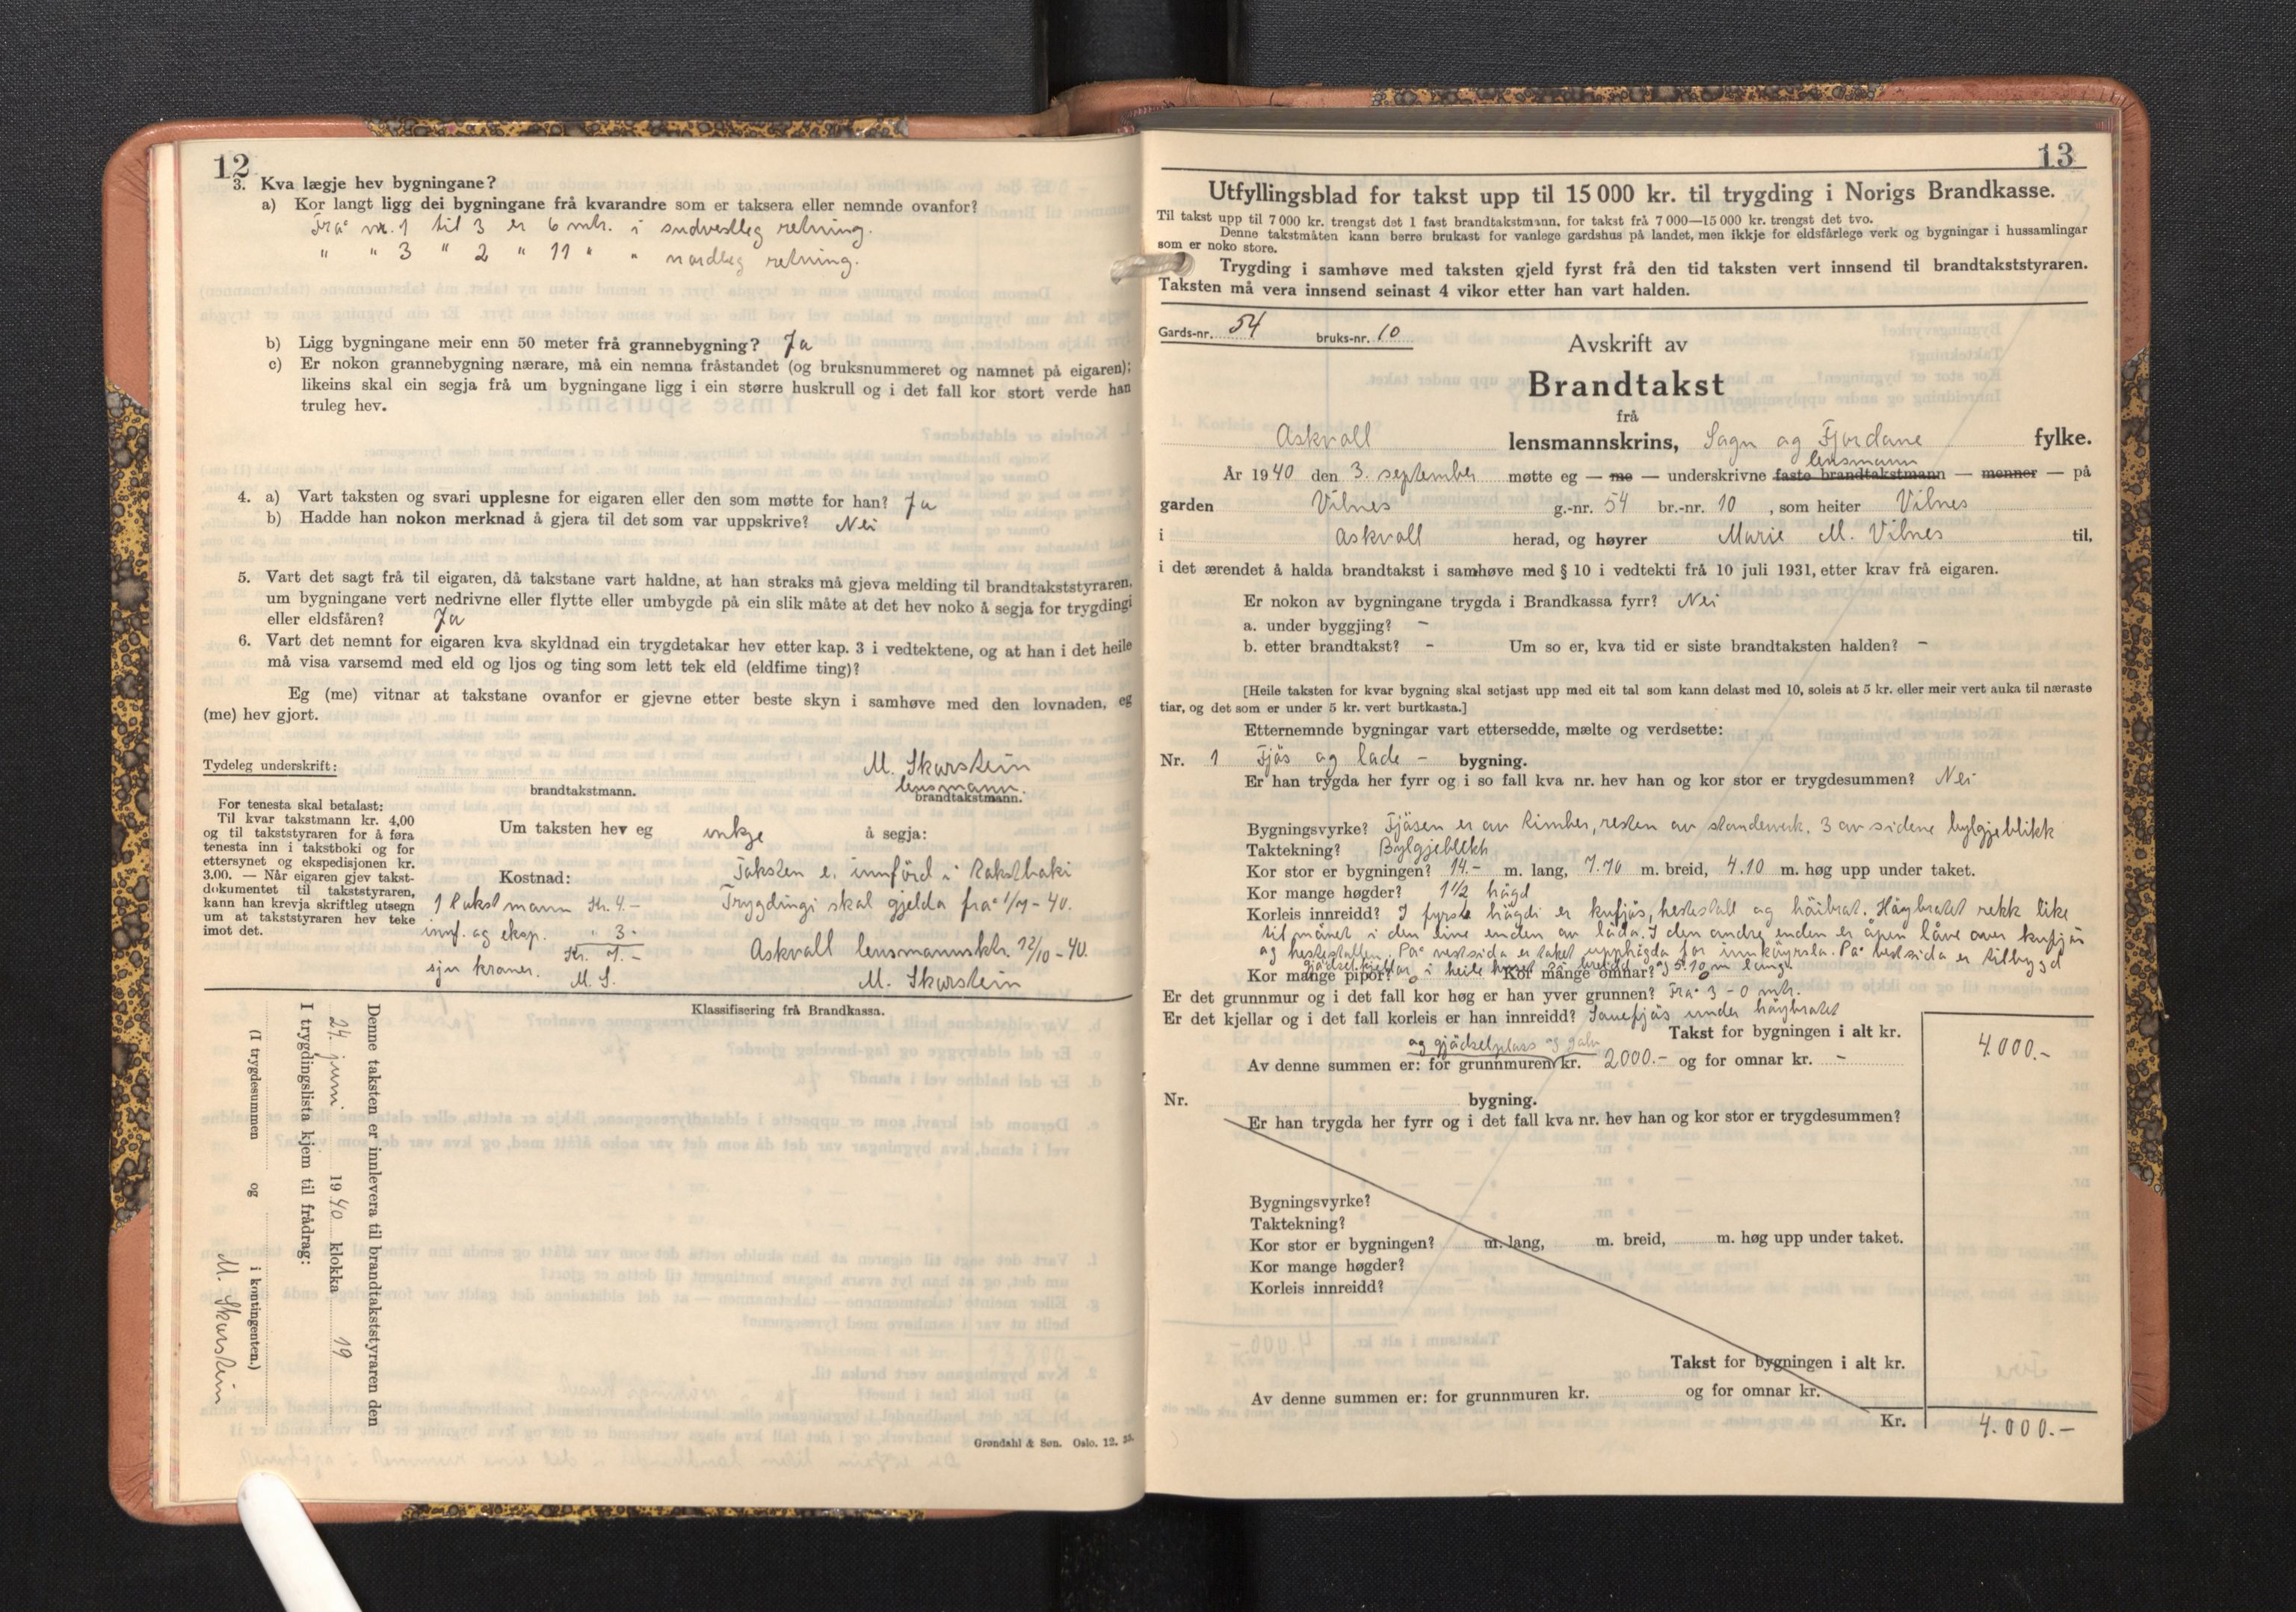 12
3. Kva lægje hev bygningane?
a) Kor langt ligg dei bygningane frå kvarandre som er taksera eller nemnde ovanfor?
Frå nr. 1 til 3 er 6 mtr. i sudvestleg retning.
" " 3 " 2 " 11 " " nordleg retning.
b) Ligg bygningane meir enn 50 meter frå grannebygning? Ja
c) Er nokon grannebygning nærare, må ein nemna fråstandet (og bruksnummeret og namnet på eigaren);
likeins skal ein segja frå um bygningane ligg i ein større huskrull og i det fall kor stort verde han
truleg hev.
4. a) Vart taksten og svari upplesne for eigaren eller den som møtte for han? Ja
b) Hadde han nokon merknad å gjera til det som var uppskrive? Nei
5. Vart det sagt frå til eigaren, då takstane vart haldne, at han straks må gjeva melding til brandtakststyraren,
um bygningane vert nedrivne eller flytte eller umbygde på ein slik måte at det hev noko å segja for trygdingi
eller eldsfåren? Ja
6. Vart det nemnt for eigaren kva skyldnad ein trygdetakar hev etter kap. 3 i vedtektene, og at han i det heile
må visa varsemd med eld og ljos og ting som lett tek eld (eldfime ting)?
Eg (me) vitnar at takstane ovanfor er gjevne etter beste skyn i samhøve med den lovnaden, eg
(me) hev gjort.
Tydeleg underskrift:
M. Skarstein
lensmann.
brandtakstmann. brandtakstmann.
For tenesta skal betalast:
Til kvar takstmann kr. 4,00
og til takststyraren for å føra
tenesta inn i takstboki og for
ettersynet og ekspedisjonen kr.
3.00. — Når eigaren gjev takst-
dokumentet til takststyraren,
kann han krevja skriftleg utsegn
um at takststyraren hev teke
imot det.
Um taksten hev eg inkje å segja:
Taksten e. innförd i takstboki
Trygdingi skal gjelda frå 1/9 - 40.
Askvoll lensmannsktr. 12/10 - 40.
M. Skarstein
Kostnad:
1 takstmann Kr. 4.-
innf. og eksp. " 3.-
Kr. 7.-
sju kroner.
M. S.
Klassifisering frå Brandkassa.
Denne taksten er innlevera til brandtakststyraren den
24. juni 1940 klokka 19
I trygdingslista kjem til frådrag:
(I trygdesummen og i kontingenten.)
M. Skarstein
Grøndahl & Søn. Oslo. 12.
13
Utfyllingsblad for takst upp til 15 000 kr. til trygding i Norigs Brandkasse.
Til takst upp til 7 000 kr. trengst det 1 fast brandtakstmann, for takst frå 7 000—15 000 kr. trengst det tvo.
Denne takstmåten kann berre brukast for vanlege gardshus på landet, men ikkje for eldsfårlege verk og bygningar i hussamlingar
som er noko store.
Trygding i samhøve med taksten gjeld fyrst frå den tid taksten vert innsend til brandtakststyraren.
Taksten må vera innsend seinast 4 vikor etter han vart halden.
Gards-nr. 54 bruks-nr. 10
Avskrift av
Brandtakst
frå
Askvoll lensmannskrins, Sogn og Fjordane fylke.
lensmann
År 1940 den 3. september møtte eg — me — underskrivne faste brandtakstmann — menner — på
garden Vilnes g.-nr. 54 br.-nr. 10 , som heiter Vilnes
i Askvoll herad, og høyrer Marie M. Vilnes til,
i det ærendet å halda brandtakst i samhøve med § 10 i vedtekti frå 10 juli 1931, etter krav frå eigaren.
Er nokon av bygningane trygda i Brandkassa fyrr? Nei
a. under byggjing? -
b. etter brandtakst? - Um so er, kva tid er siste brandtaksten halden? -
[Heile taksten for kvar bygning skal setjast upp med eit tal som kann delast med 10, soleis at 5 kr. eller meir vert auka til næraste
tiar, og det som er under 5 kr. vert burtkasta.]
Etternemnde bygningar vart ettersedde, mælte og verdsette:
Nr. 1 Fjös og lade - bygning.
Er han trygda her fyrr og i so fall kva nr. hev han og kor stor er trygdesummen? Nei
Bygningsvyrke? Fjösen er av timber, resten av standerverk. 3 av sidene bylgjeblikk
Taktekning? Bylgjeblekk
Kor stor er bygningen? 14.- m. lang, 7.70 m. breid, 4.10 m. høg upp under taket.
Kor mange høgder? 1 1/2 högd
Korleis innreidd? I fyrste högdi er kufjös, hestestall og höibrot. Höybrotet rekk like
til mönet i den eine enden av löda. I den andre enden er åpen låve over kufjös
og hestestallen. På vestsida er taket upphögda for innköyrsla. På vestsida er tilbygd
gjödselkjellar i heile huset si breidd og 5.10 m lang.
Kor mange pipor? 0 Kor mange omnar? 0
Er det grunnmur og i det fall kor høg er han yver grunnen? Frå 3 - 0 mtr.
Er det kjellar og i det fall korleis er han innreidd? Sauefjös under höybrotet
Takst for bygningen i alt kr. 4.000.-
og gjödselplass og golv
Av denne summen er: for grunnmuren kr. 2000.- og for omnar kr. -
Nr. bygning.
Er han trygda her fyrr og i det fall kva nr. hev han og kor stor er trygdesummen?
Bygningsvyrke?
Taktekning?
Kor stor er bygningen? m. lang, m. breid, m. høg upp under taket.
Kor mange høgder?
Korleis innreidd?
Takst for bygningen i alt kr.
Av denne summen er: for grunnmuren kr. og for omnar kr.
Kr. 4.000.-